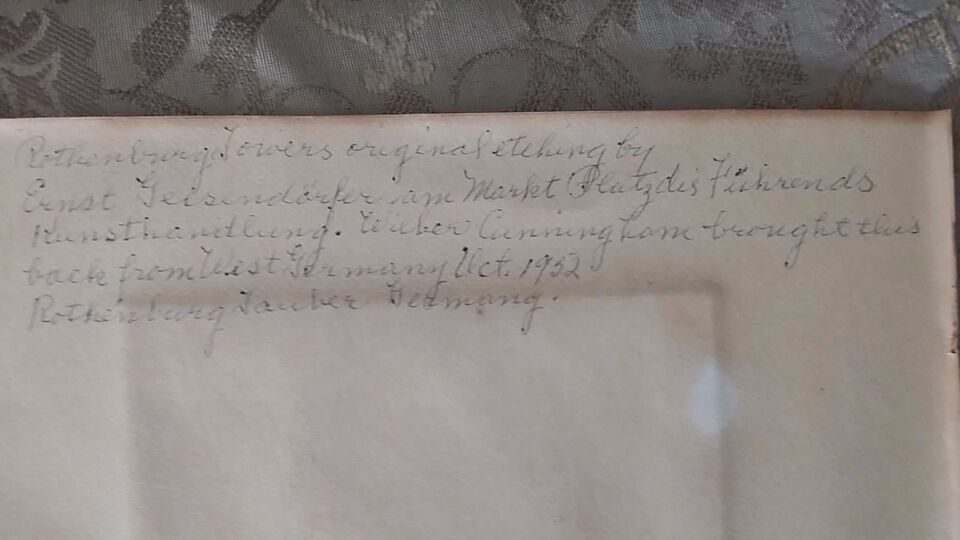 Rothenburg Towers original etching by
Ernst Geisendörfer am Markt Platz dis Führends
Kunsthandlung. Wilber Cunningham brought this
back from West Germany Oct. 1952
Rothenburg Tauber Germany.